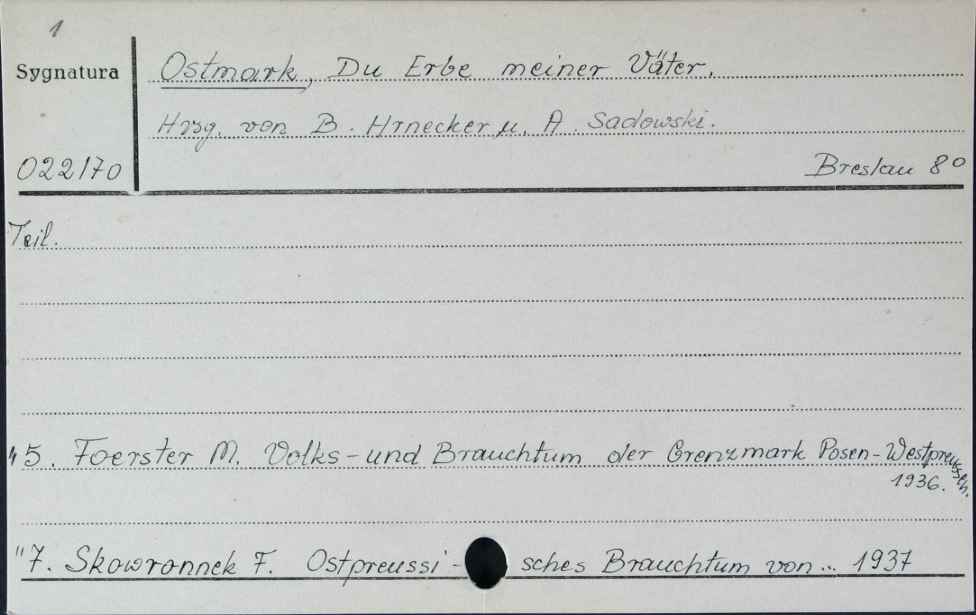 1
Sygnatura
Ostmark, Du Erbe meiner Väter.
Hrsg. von B. Hrnecker u. A. Sadowski.
022170
Breslau 8°
Teil.
" 5. Foerster M. Volks-und Brauchtum der Grenzmark Posen-Westpreussen.
1936.
" 7. Skowronnek F. Ostpreussi-sches Brauchtum von... 1937